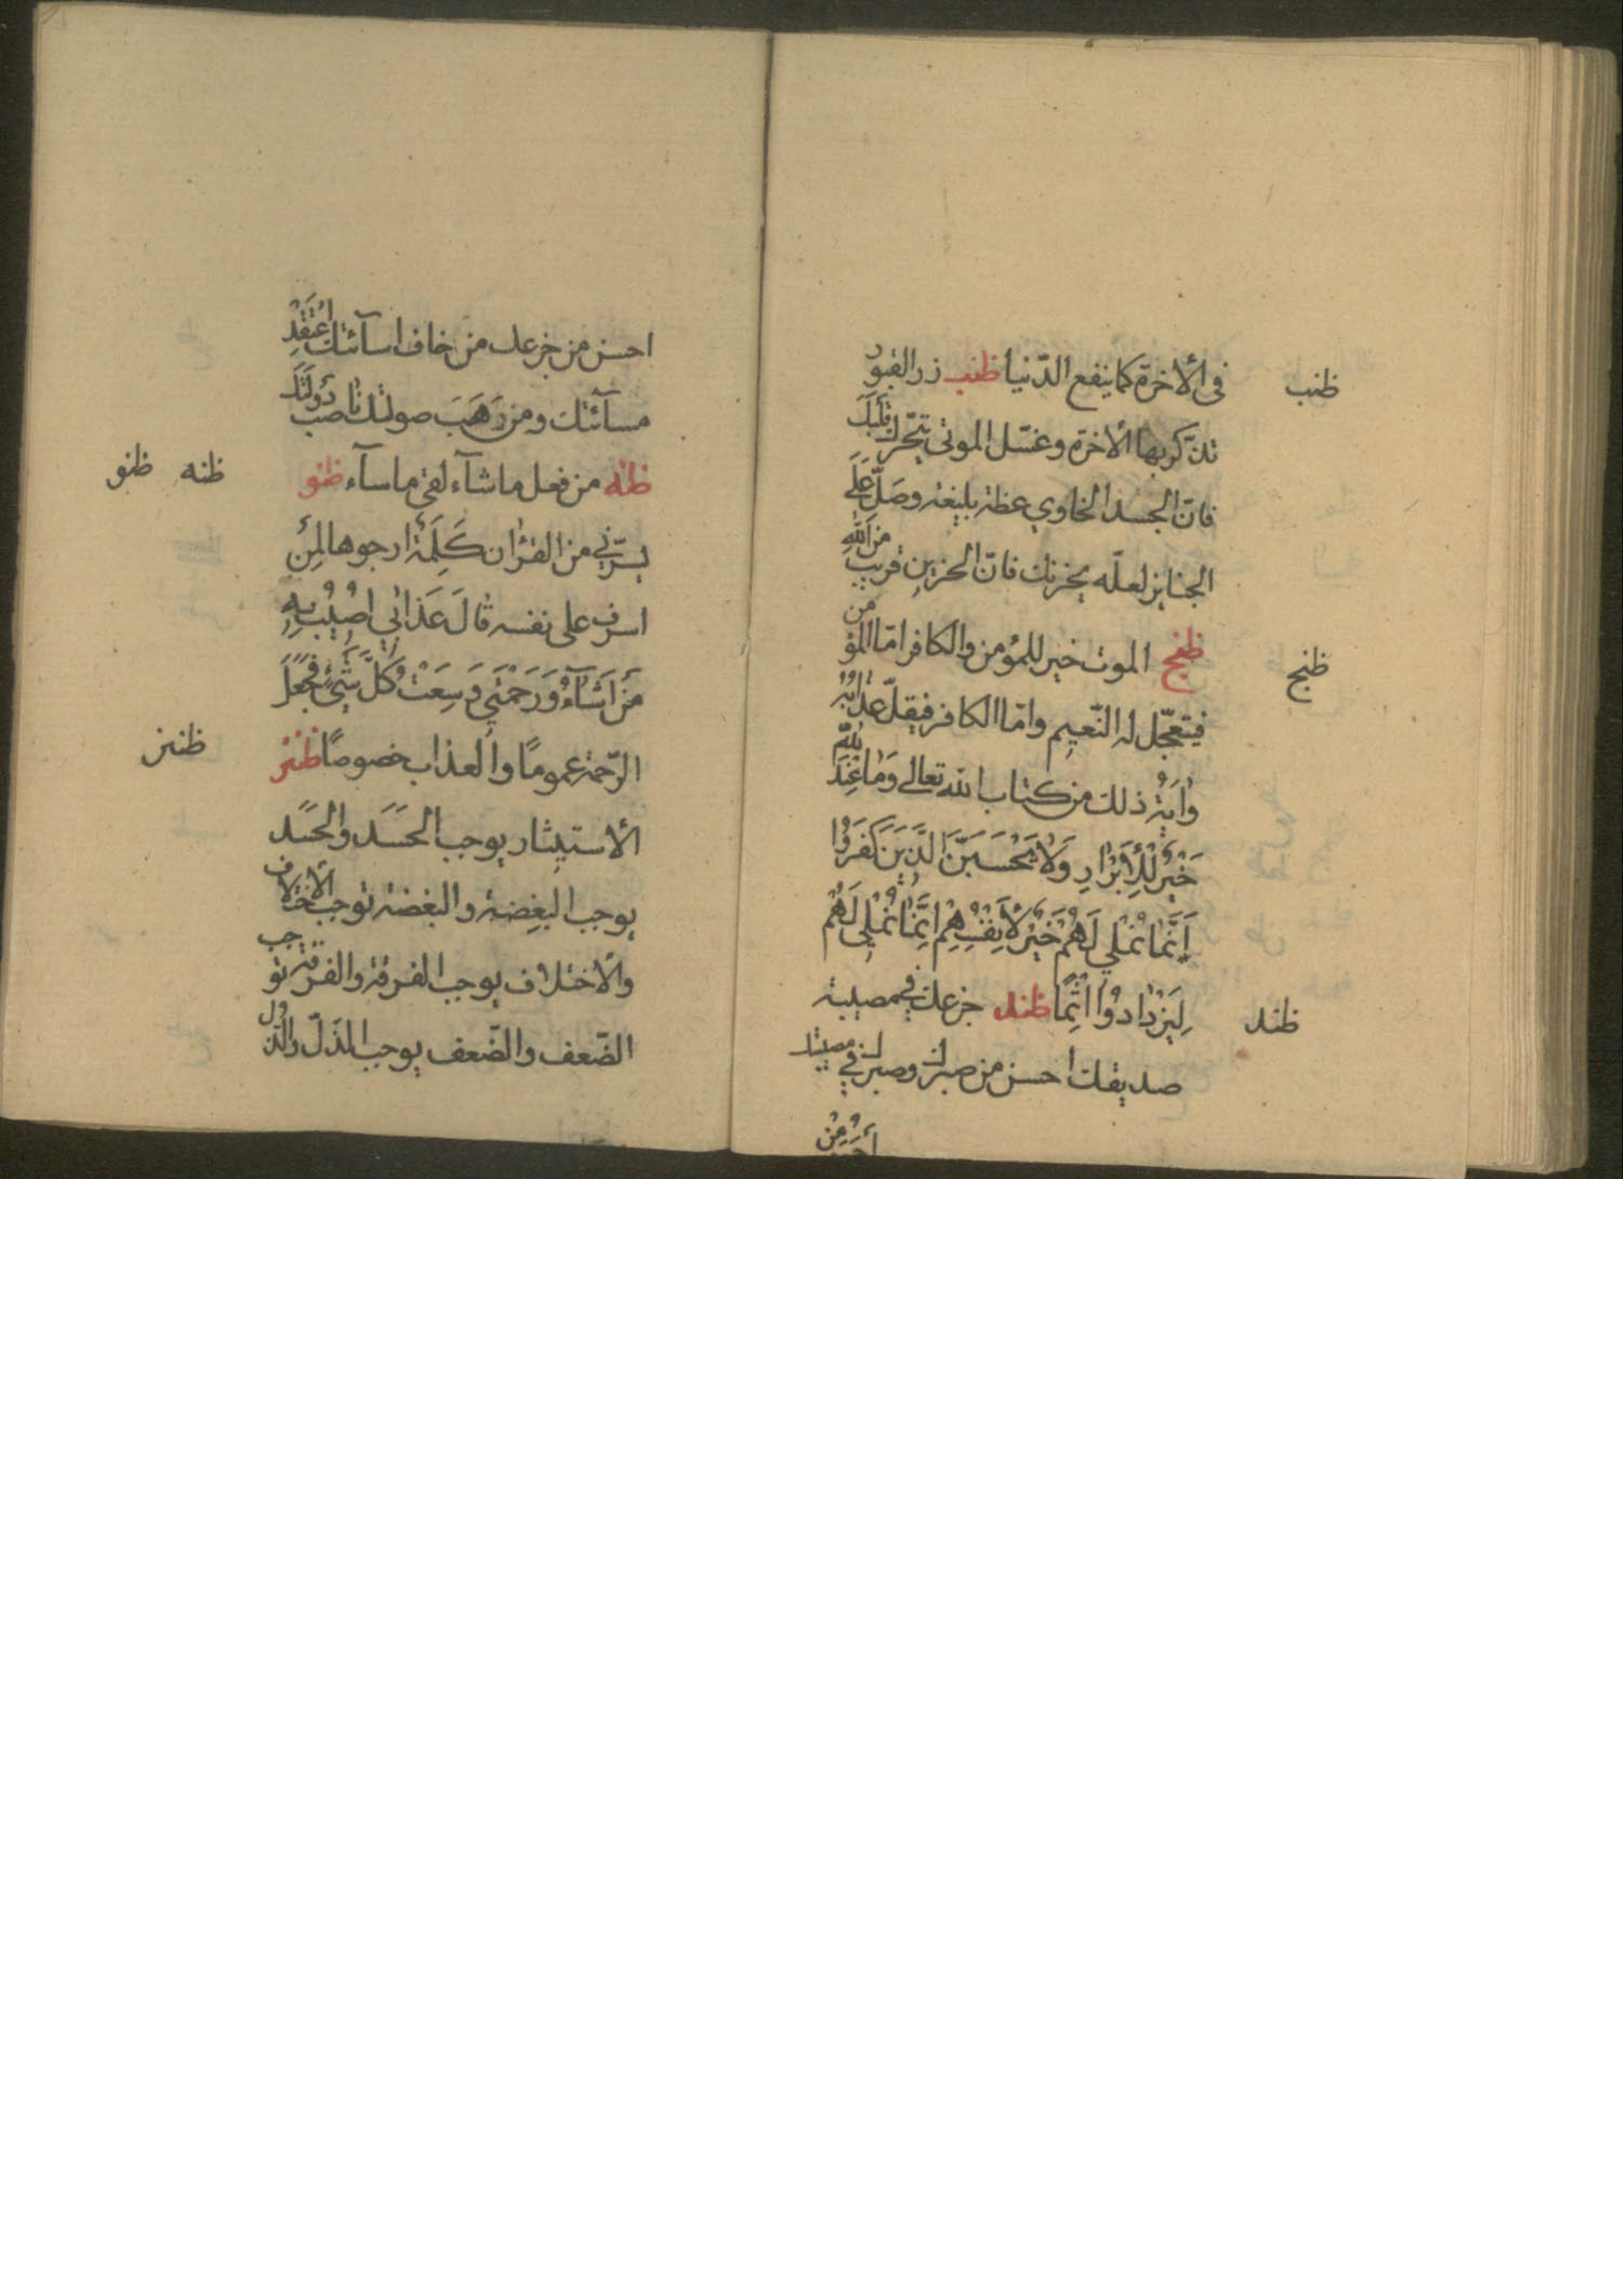 فى الأخرة كما ينفع الدّنيا ظنب زر القبور
ظنب
تذكّر بها الأخرة وغسّل الموتى يتحّرك قلبك
فانّ الجسد الخاوي عظة بليغة وصَلّ عَلَى
الجنايز لعلّه يحزنك فانّ الحزين قريب من الله
ظنج الموت خير للمؤمن والكافر امّا المؤمن
ظنج
فيتعجّل له النّعيم وامّا الكافر فيقلّ عذابه
وايَة ذلك من كتاب الله تعالى وَمَا عِنْدَ اللهِ
خَيْرٌ لِلْأَبْرَارِ وَلاَ يَحْسَبَنَّ الَّذِينَ كَفَرُوا
اَنَّمَا نُمْلِي لَهُمْ خَيْرٌ لأَنْفُسِهِمْ اِنَّمَا نُمْلِي لَهُمْ
لِيَزْدَادُوا اثْمًا ظند جزعك فى مصيبة
ظند
صديقك احسن من صبرك وصبرك في مصيبتك
أحسن من
احسن من جزعك من خاف اسآئتك اعْتَقَدَ
مسآئتك ومن رَهَبَ صولتك ناصب دَوْلَتَكَ
ظنه من فعل ما شآء لقى ما سآء ظنو
ظنه ظنو
يسرّني من القرْان كَلِمَة ارجوها لِمن
اسرف على نفسه قالَ عَذَابِي اُصِيْبُ بِهِ
مَنْ اَشَآءُ وَرَحْمَتِي وَسِعَتْ كُلَّ شَيْءٍ فجَعَلَ
الرّحمة عمومًا والعذاب خصوصًا ظنز
ظنز
الأستيثار يوجب الحَسَد والحَسَد
يوجب البغضة والبغضة توجب الأختلاف
والأختلاف يوجب الفرقة والفرقة توجب
الضّعف والضّعف يوجب الذّل والذّل